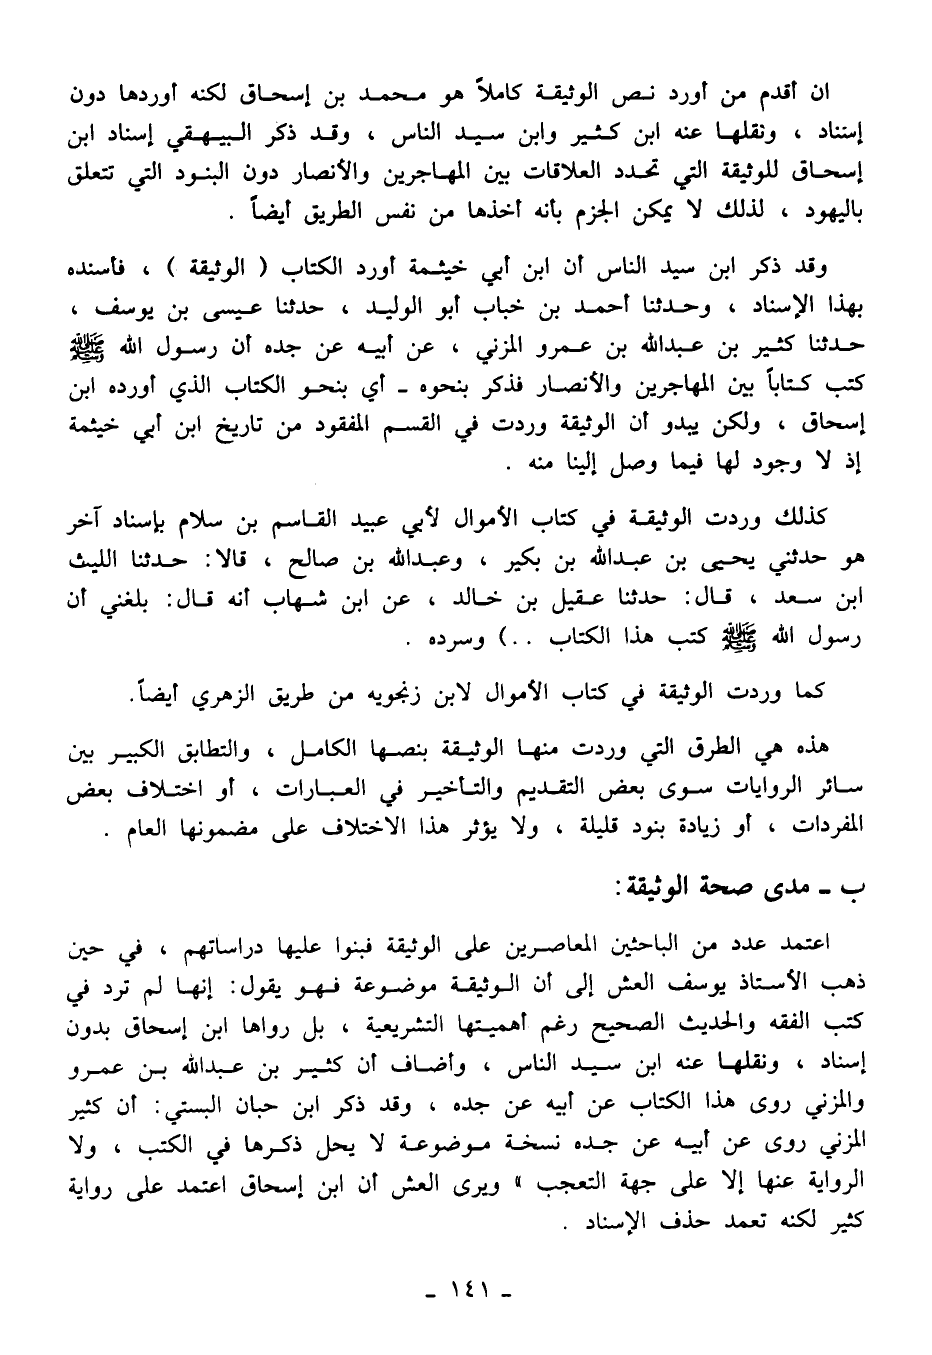 ان أقدم من أورد نص الوثيقة كاملاً هو محمد بن إسحاق لكنه أوردها دون
إسناد ، ونقلها عنه ابن كثير وابن سيد الناس ، وقد ذكر البيهقي إسناد ابن
إسحاق للوثيقة التي تحدد العلاقات بين المهاجرين والأنصار دون البنود التي تتعلق
باليهود ، لذلك لا يمكن الجزم بأنه أخذها من نفس الطريق أيضاً .
وقد ذكر ابن سيد الناس أن ابن أبي خيثمة أورد الكتاب ( الوثيقة ) ، فأسنده
بهذا الإسناد ، وحدثنا أحمد بن خباب أبو الوليد ، حدثنا عيسى بن يوسف ،
حدثنا كثير بن عبدالله بن عمرو المزني ، عن أبيه عن جده أن رسول الله ﷺ
كتب كتاباً بين المهاجرين والأنصار فذكر بنحوه ـ أي بنحو الكتاب الذي أورده ابن
إسحاق ، ولكن يبدو أن الوثيقة وردت في القسم المفقود من تاريخ ابن أبي خيثمة
إذ لا وجود لها فيما وصل إلينا منه .
كذلك وردت الوثيقة في كتاب الأموال لأبي عبيد القاسم بن سلام بإسناد آخر
هو حدثني يحيى بن عبدالله بن بكير ، وعبدالله بن صالح ، قالا: حدثنا الليث
ابن سعد ، قال: حدثنا عقيل بن خالد ، عن ابن شهاب أنه قال: بلغني أن
رسول الله ﷺ كتب هذا الكتاب ..) وسرده .
كما وردت الوثيقة في كتاب الأموال لابن زنجويه من طريق الزهري أيضاً.
هذه هي الطرق التي وردت منها الوثيقة بنصها الكامل ، والتطابق الكبير بين
سائر الروايات سوى بعض التقديم والتأخير في العبارات ، أو اختلاف بعض
المفردات ، أو زيادة بنود قليلة ، ولا يؤثر هذا الاختلاف على مضمونها العام .
ب ـ مدى صحة الوثيقة:
اعتمد عدد من الباحثين المعاصرين على الوثيقة فبنوا عليها دراساتهم ، في حين
ذهب الأستاذ يوسف العش إلى أن الوثيقة موضوعة فهو يقول: إنها لم ترد في
كتب الفقه والحديث الصحيح رغم أهميتها التشريعية ، بل رواها ابن إسحاق بدون
إسناد ، ونقلها عنه ابن سيد الناس ، وأضاف أن كثير بن عبدالله بن عمرو
والمزني روى هذا الكتاب عن أبيه عن جده ، وقد ذكر ابن حبان البستي: أن كثير
المزني روى عن أبيه عن جده نسخة موضوعة لا يحل ذكرها في الكتب ، ولا
الرواية عنها إلا على جهة التعجب » ويرى العش أن ابن إسحاق اعتمد على رواية
كثير لكنه تعمد حذف الإسناد .
ـ ١٤١ ـ